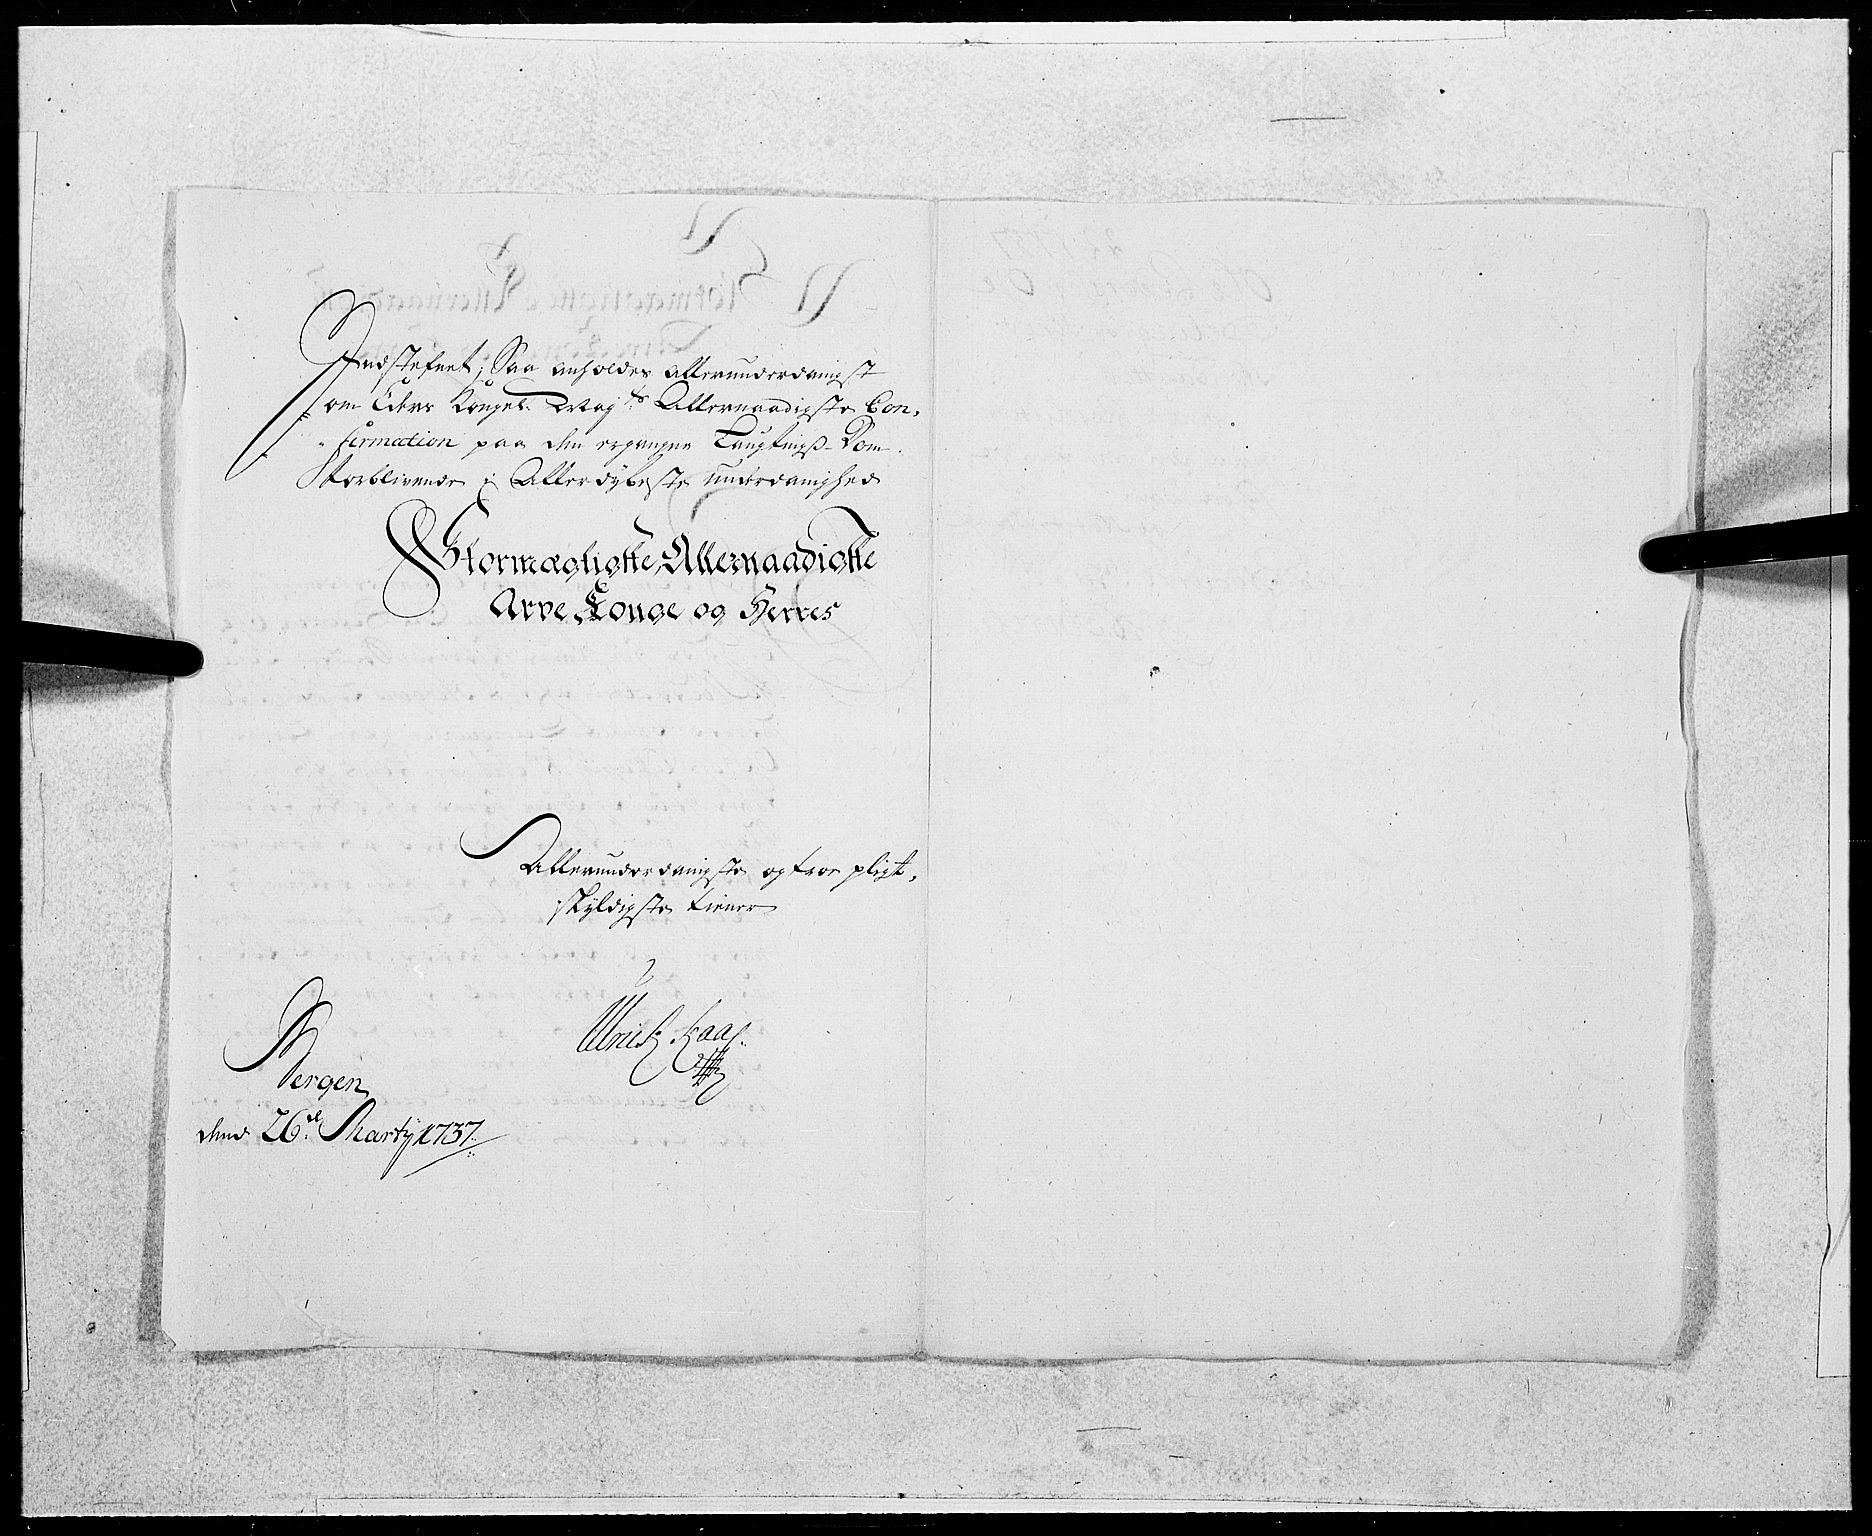 Indstefnet; Saa anholdes allerunderdanigst
om Eders Kongel: May:ts Allernaadigste Con,
firmation paa den ergangne Laugtings-Dom.
Forblivende i Allerdybeste underdanighed
Stormægtigste, Allernaadigste
Arve Konge og Herres
Allerunderdanigste og troe pligt,
skyldigste tiener
Ulrich Kaas.
Bergen
dend 26de Marty 1737.